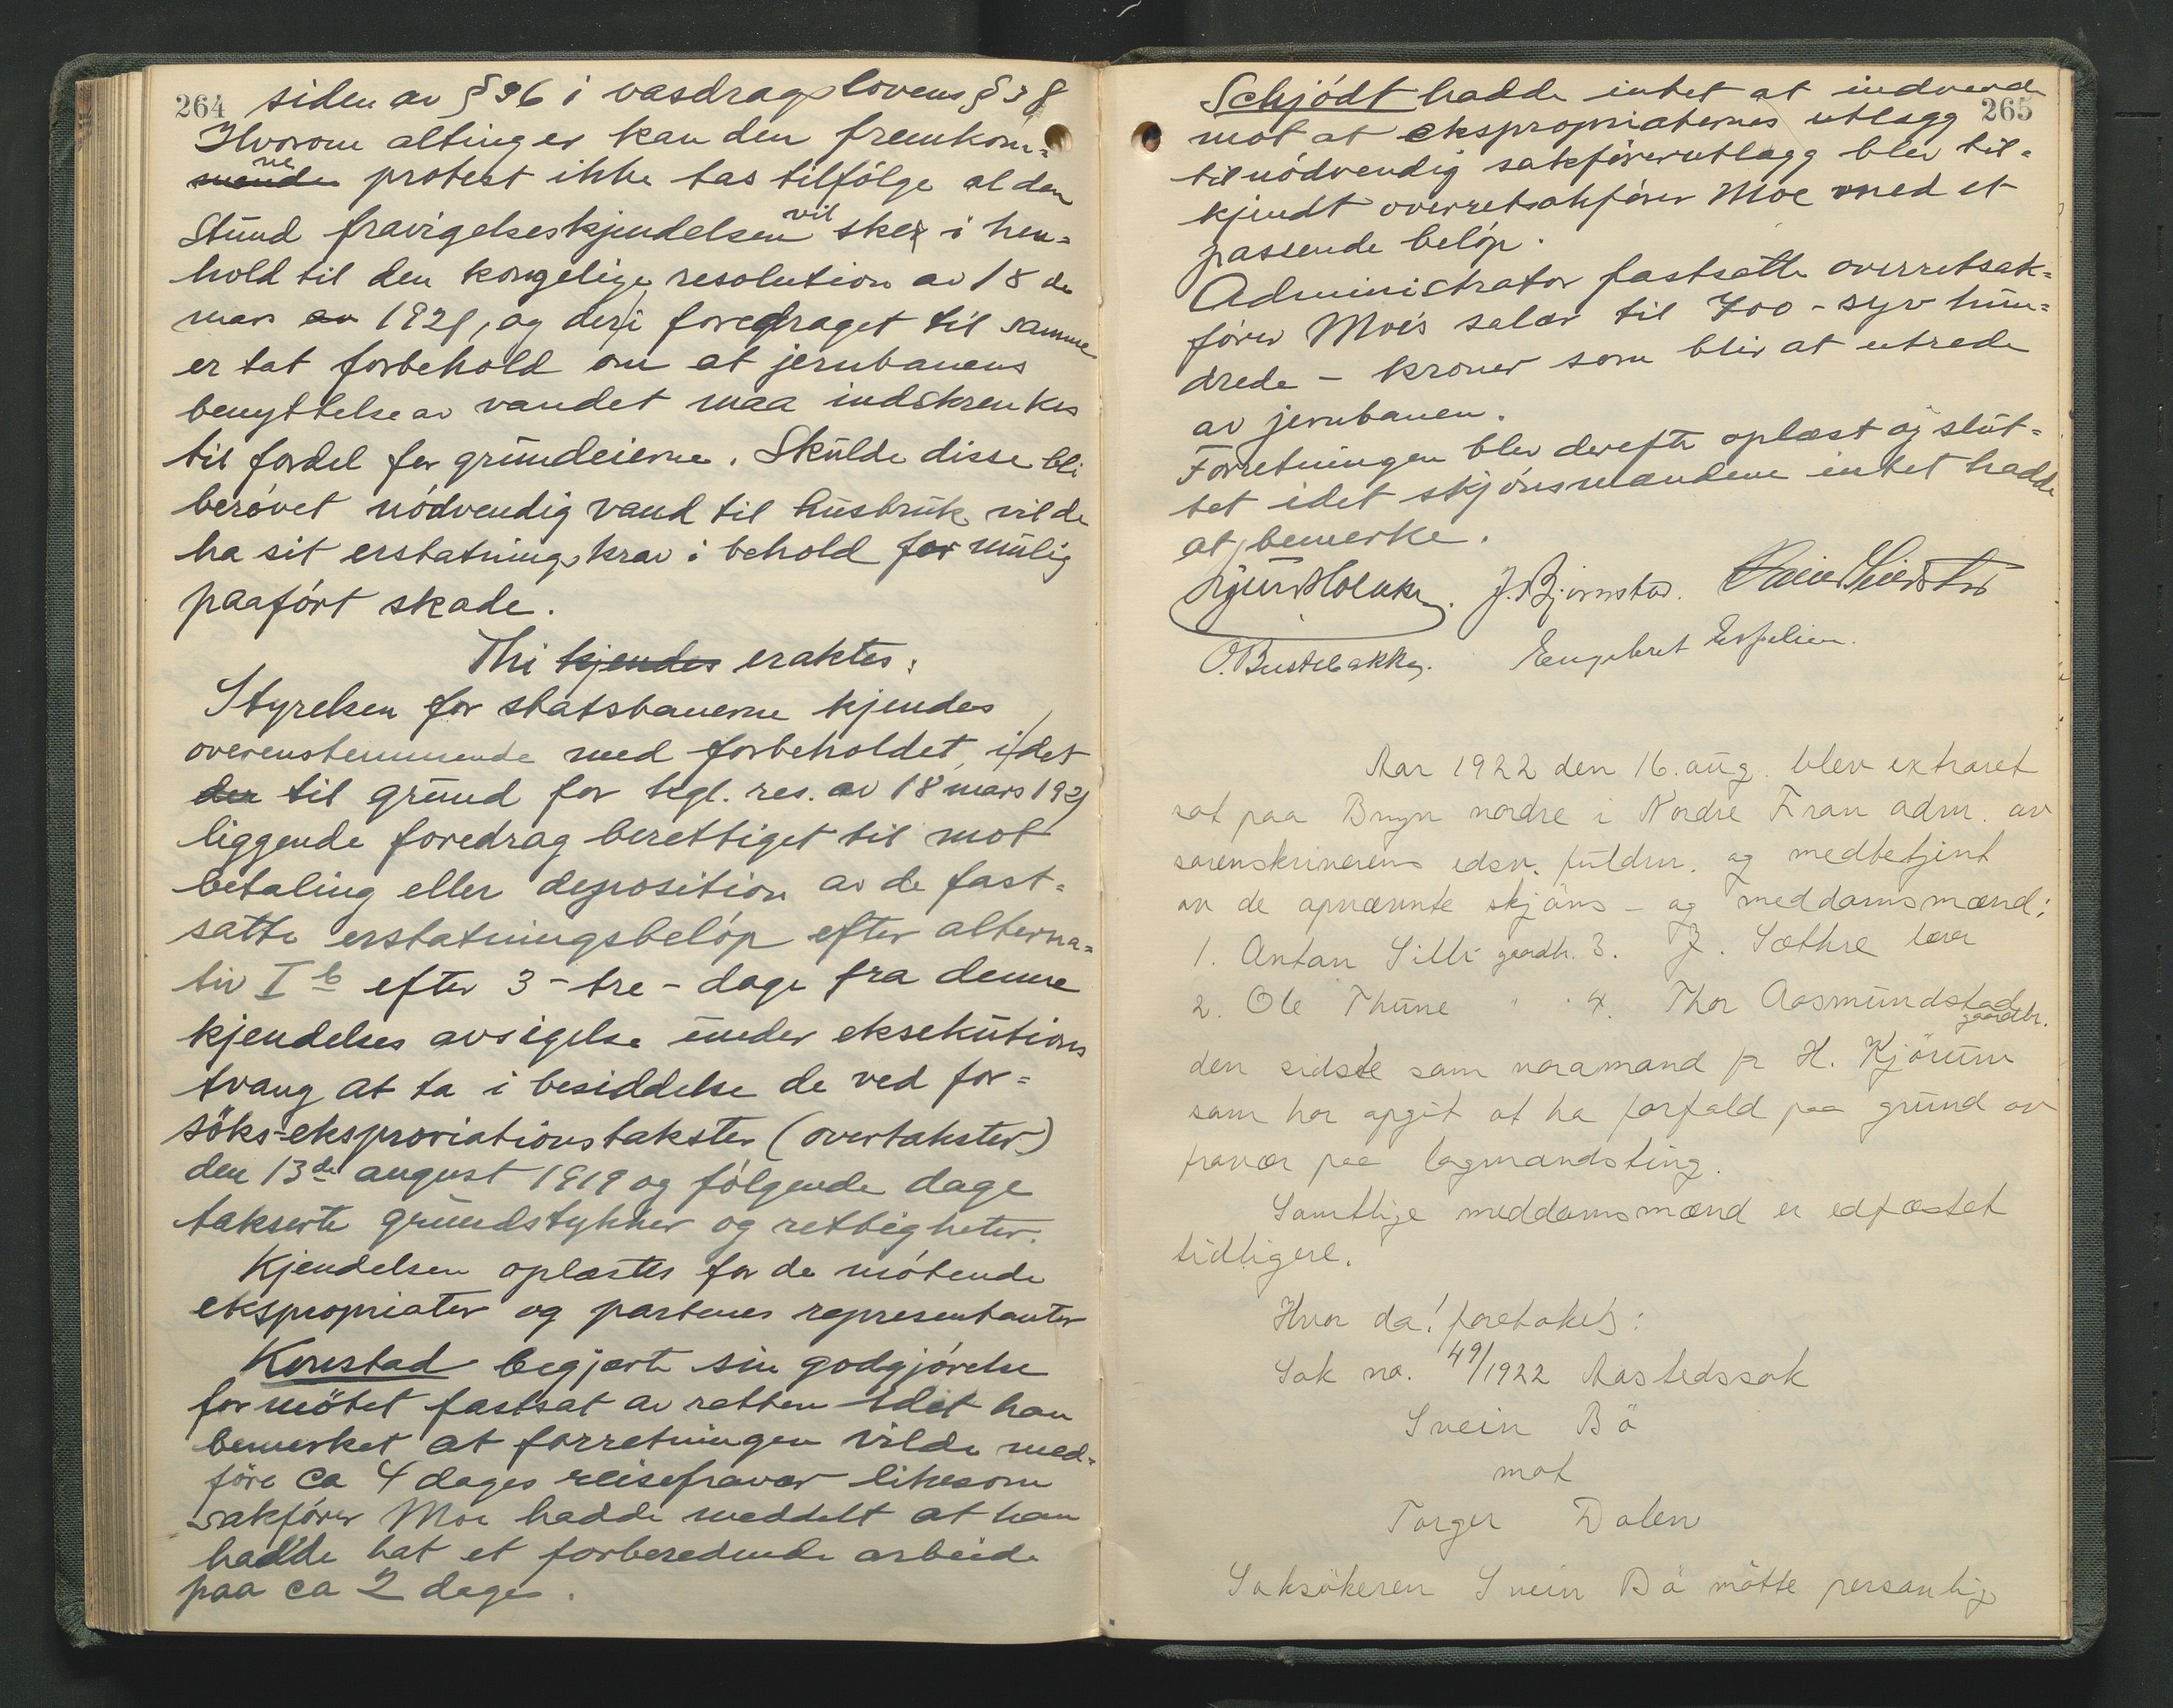 264
siden av § 36 i vasdragslovens § 38
Hvorom alting er kan den fremkom=
ne protest ikke tas tilfölge al den
Stund fravigelseskjendelsen vil skei i hen=
hold til den kongelige resolution av 18 de
mars 1921, og der i foredraget til samme
er tat forbehold om at jernbanens
benyttelse av vandet maa indskrenkes
til fordel for grundeierne. Skulde disse bli
berövet nödvendig vand til husbruk vil de
ha sit erstatningskrav i behold for mulig
paafört skade.
Thi kjendes eraktes:
Styrelsen for statsbanerne kjendes
overenstemmende med forbeholdet, i det
den til grund for kgl. res. av 18 mars 1921
liggende foredrag berettiget til mot
betaling eller deposition av de fast=
satte erstatningsbelöp efter alterna=
tiv I b efter 3 - tre - dage fra denne
kjendelses avsigelse under eksekutions
tvang at ta i besiddelse de ved for=
söks-eksproriationstakster (overtakster)
den 13de august 1919 og fölgende dage
takserte grundstykker og rettigheter.
Kjendelsen oplæstes for de mötende
ekspropriater og partenes representanter
Konstad begjærte sin godtgjörelse
for mötet fastsat av retten idet han
bemerket at forretningen vilde med=
före ca 4 dages reisefravær likesom
sakförer Moe hadde meddelt at han
hadde hat et forberedende arbeide
paa ca 2 dage.
265
Schjödt hadde intet at indvende
mot at ekspropriaternes utlægg
til nödvendig sakförerutlægg blev til=
kjendt overretsakförer Moe med et
passende belöp.
Administrator fastsatte overretsak=
förer Moe's salær til 700 - syv hun=
drede - kroner som blir at utrede
av jernbanen.
Forretningen blev derefter oplæst og slut=
tet idet skjönsmændene intet hadde
at bemerke.
J. Björnstad.
O. Bustebakke. Engebret Espelien.
Aar 1922 den 16. aug. blev extraret
sat paa Bryn nordre i Nordre Fran adm. av
sorenskriverens edsv. fuldm. og medbetjent
av de opnævnte skjöns- og meddomsmænd:
1. Anton Silli gaardbr. 3. J. Sæthre lærer
2. Ole Thune " 4. Thor Aasmundstad gaardbr.
den sidste som varamand for H. Kjörum
som har opgit at ha forfald paa grund av
fravær paa lagmandsting.
Samtlige meddomsmænd er edfæstet
tidligere.
Hvor da! foretokes:
Sak no. 49/1922 Aastedssak
Svein Bö
mot
Torger Dolen
Saksökeren Svein Bö mötte personlig